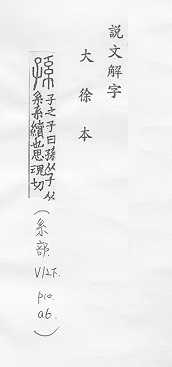 説文解字
大徐本
孫 子之子曰孫从子从
系系續也思魂切
(系部
V12下.
p10.
a6.)